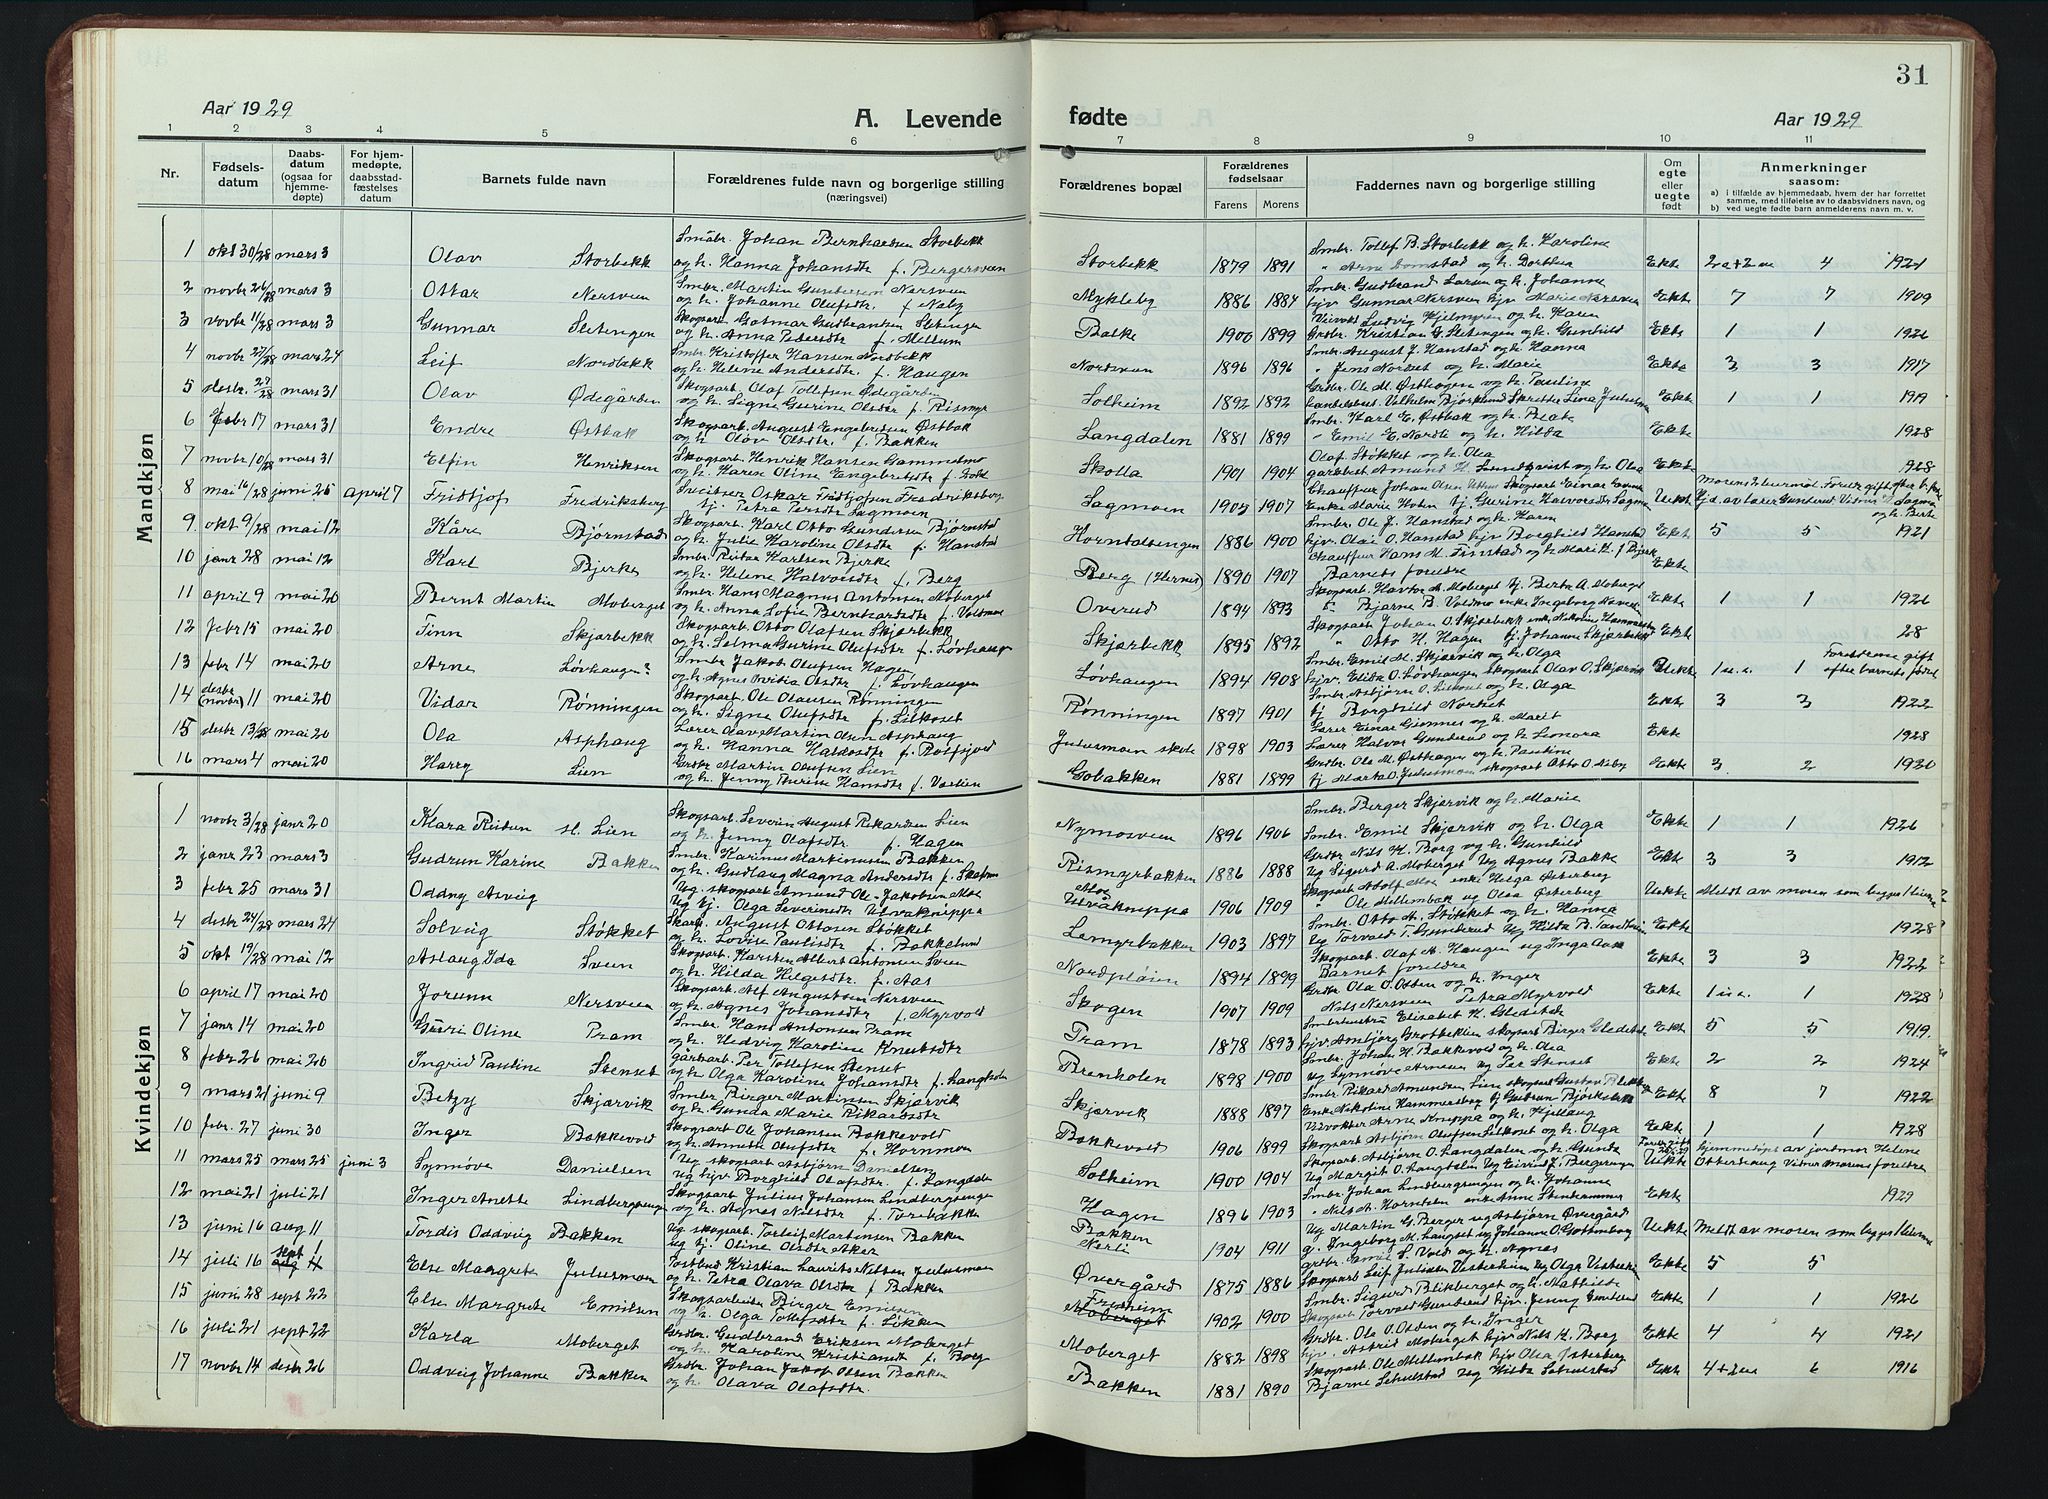 31
Aar 1929
A. Levende
fødte
Aar 1929
1 2 3 4 5 6 7 8 9 10 11
Nr.
Fødsels-
datum
Daabs-
datum
(ogsaa for
hjemme-
døpte)
For hjem-
medøpte,
daabsstad-
fæstelses
datum
Barnets fulde navn
Forældrenes fulde navn og borgerlige stilling
(næringsvei)
Forældrenes bopæl
Forældrenes
fødselsaar
Farens Morens
Faddernes navn og borgerlige stilling
Om
egte
eller
uegte
født
Anmerkninger
saasom:
a) i tilfælde av hjemmedaab, hvem der har forrettet
samme, med tilføielse av to daabsvidners navn, og
b) ved uegte fødte barn anmelderens navn m. v.
Mandkjøn
1 okt 30/28 mars 3 Olav Storbekk Småbr. Johan Bernhardsen Storbekk
og h. Hanna Johansdtr f. Bergersveen Storbekk 1879 1891 Smbr. Tollef B. Storbekk og h. Karoline
" Arne Domstad og h. Dorthea Ekte 4 1921
2 novbr 26/28 mars 3 Ottar Nersveen Smbr. Martin Gundersen Nersveen
og h. Johanne Olufsdtr f. Neby Mykleby 1886 1884 Smbr. Gudbrand Larsen og h. Johanne
hjv Gunnar Nersveen hjv Marie Nersveen Ekte 7 7 1909
3 novbr 11/28 mars 3 Gunnar Sletengen Skogsarb Gotmar Gudbrandsen Sletengen
og h. Anna Pedersdtr f. Mellum Balke 1900 1899 Ludvig Hjelmgren og h. Karen
Grdbr. Kristian G. Sletengen og h. Gunhild Ekte 1 1 1926
4 novbr 27/28 mars 24 Leif Nordbekk Smbr. Kristoffer Hansen Nordbekk
og h. Helene Andersdtr. f. Haugen Nordsveen 1896 1896 Smbr. August J. Hanstad og h. Hanna
" Jens Nordset og h. Marie Ekte 3 3 1917
5 desbr. 27/28 mars 31 Olav Ødegården Skogsarb. Olaf Tollefsen Ødegården
og h. Signe Gurine Olsdtr f. Rismyr Solheim 1892 1892 Grdbr. Ole M. Østhagen og h. Pauline
Ekte 1 1 1919
6 febr 17 mars 31 Endre Østbak Skogsarb. August Engebretsen Østbak
og h. Olov Olsdtr. f. Bakken Langdalen 1881 1899 Smbr. Karl E. Østbak og h. Beate
" Emil E. Nordli og h. Hilda Ekte 1928
7 novbr 10/28 mars 31 Elfin Henriksen Skogsarb. Henrik Hansen Gammelmo
og h. Karen Oline Engebretsdtr f. Skolla 1901 1904 Olaf Støkket og h. Olea
Amund H. Lundqvist og h. Olea Ekte 1928
8 mai 16/28 juni 25 april 7 Fridtjof Fredriksberg Oskar Fridtjofsen Fredriksberg
tj. Petra Persdtr Sagmoen Sagmoen 1905 1907 Chauffør Johan Olsen
Enke Marie Hoten tj. Gurine Halvorsdtr Sagmoen Uekte
9 okt 9/28 mai 12 Kåre Bjørnstad Skogsarb. Karl Otto Gundersen Bjørnstad
og h. Julie Karoline Olsdtr f. Hanstad 1886 1900 Smbr. Ole J. Hanstad og h. Karen
hjv. Olai O. Hanstad hjv Borghild Hanstad Ekte 5 5 1921
10 janr 28 mai 12 Karl Bjerke Smbr. Reidar Karlsen Bjerke
og h. Helene Halvorsdtr f. Berg Berg (Hernes) 1890 1907 Chauffør Hans M. Finstad
Barnets foreldre Ekte
11 april 9 mai 20 Bernt Martin Moberget Smbr. Hans Magnus Antonsen Moberget
og h. Anna Sofie Bernhardsdtr f. Voldmo Overud 1894 1893 Skogsarb. Moberget tj. Berte A. Moberget
Bjarne B. Voldmo enke Ingeborg Ekte 1 1 1926
12 febr 15 mai 20 Finn Skjærbekk Skogsarb Otto Olafsen Skjærbekk
og h. Selma Gurine Olufsdtr f. Løvhaug Skjærbekk 1895 1892 Skogsarb Johan O. Skjærbekk
" Otto H. Hagen tj. Johanne Skjærbekk Ekte 28
13 febr 14 mai 20 Arne Løvhaugen? Smbr Jakob Olufsen Hagen
og h. Agnes Olsdtr f. Løvhaugen Løvhaugen 1894 1908 Smbr. Emil M. Skjærvik og h. Olga
hjv. Elida O. Løvhaugen skogsarb Olav O. Skjærvik Uekte 1 u.e. 1 Foreldrene gift
efter barnets fødsel
14 (desbr novbr) 11 mai 20 Vidar Rønningen Skogsarb. Ole Olausen Rønningen
og h. Signe Olufsdtr f. Lilkoset Rønningen 1897 1901 Smbr. Asbjørn O. Lilkoset og h. Olga
tj Borghild Nordset Ekte 3 3 1922
15 desbr 13/28 mai 20 Ola Asphaug Lærer Olav Martin Olsen Asphaug
og h. Hanna Haldosdtr f. Rossfjord Julusmoen skole 1898 1903 Lærer Einar Gjennes og h. Marit
Lærer Halvor Gunderud og h. Lenora Ekte 1928
16 mars 4 mai 20 Harry Lien Grdbr Martin Olufsen Lien
og h. Jenny Therese Hansdtr f. Vestlien Gobakken 1881 1899 Grdbr. Ole M. Østhagen og h. Pauline
tj Marta O. Julusmoen skogsarb Otto O. Neby Ekte 3 2 1920
Kvindekjøn
1 novbr 3/28 janr 20 Klara Reidun Lien Skogsarb. Severin August Rikardsen Lien
og h. Jenny Olafsdtr. f. Hagen Nymosveen 1896 1906 Smbr. Berger Skjærvik og h. Marie
Smbr. Emil Skjærvik og h. Olga Ekte 1 1 1926
2 janr 23 mars 3 Gudrun Karine Bakken Smbr. Karinus Martinusen Bakken
og h. Gudlaug Magna Andersdtr f. Rismyrbakken 1886 1888 Grdbr Nils H. Borg og h. Gunhild
Ug Sigurd A. Moberget Ug Agnes Bakke Ekte 3 3 1912
3 febr 25 mars 31 Oddny Asveig Ug. skogsarb Amund Ole Jakobsen Moe
Ug tj. Olga Severinsdtr Ulvåknippa Moe
Ulvåknippa 1906 1909 Skogsarb Adolf Moe enke Helga Østerberg
" Ole Mellembak ug Olea Østerberg Uekte Meldt av moren som bygges i Hernes
4 desbr 24/28 mars 24 Solveig Støkket Skarb. August Ottosen Støkket
og h. Lovise Paulisdtr f. Bakkelund Lemyrbakken 1903 1897 Smbr. Otto A. Støkket og h. Hanna
Ug Torvald T. Gunderud Ug Hilda B. Ekte 1928
5 okt 19/28 mai 12 Aslaug Ida Sveen Skogsarb. Karsten Albert Antonsen Sveen
og h. Hilda Helgesdtr f. Aas Nordpløien 1894 1899 Skogsarb. Olaf A. Haugen ug Inga Aas
Barnets foreldre Ekte 3 3 1922
6 april 17 mai 20 Jorunn Nersveen Skogsarb. Alf Augustsen Nersveen
og h. Agnes Johansdtr f. Myrvold Skogen 1907 1909 Grdbr Ola O. Otten og h. Inger
Nils Nersveen Petra Myrvold Ekte 1 u.e. 1 1928
7 janr 14 mai 20 Guri Oline Pram Smbr. Hans Antonsen Pram
og h. Hedvig Karoline Knutsdtr Pram 1878 1893 Elisabet H. Gleditsk
hjv Arnbjørg Grotbekklien skogsarb Birger Gleditsk Ekte 5 5 1919
8 febr 26 mai 20 Ingrid Pauline Stenset gårdsarb. Per Tollefsen Stenset
og h. Olga Karoline Johansdtr f. Langholen Brenholen 1898 1900 Smbr. Johan H. Bakkevold og h. Olea
ug Synnøve Arnesen ug Per Stenset Ekte 2 2 1924
9 mars 21 juni 9 Betzy Skjærvik Smbr Birger Martinsen Skjærvik
og h. Gunda Marie Rikardsdtr Skjærvik 1888 1897 Smbr. Rikard Amundsen Lien skogsarb Gustav
Enke Nikoline Hammersberg tj Gudrun Bjørkebekk Ekte 8 7 1922
10 febr. 27 juni 30 Inger Bakkevold Skogsarb Ole Johansen Bakkevold
og h. Annette Olufsdtr f. Hornmoen Bakkevold 1906 1899 Arne Knippa og h. Hjellaug
Skogsarb Asbjørn Olufsen Lilkoset og h. Olga Ekte 1 1 1928
11 mars 25 mars 25 juni 3 Synnøve Danielsen Ug skogsarb Asbjørn Danielsen
Ug hjv Borghild Olafsdtr. f. Langdalen Solheim 1900 1904 Skogsarb. Asbjørn O. Langdalen og h. Gunda
Ug Margit O. Langdalen Ug Eivind J. Bergerengen Uekte hjemmedøpt av jordmor Helene
Ottershaug Vidner Morens foreldre
12 mai 21 juli 21 Inger Anette Lindbergsengen Skogsarb Julius Johansen Lindbergsengen
og h. Agnes Nilsdtr f. Torebakken Hagen 1896 1903 Smbr. Johan Lindbergsengen og h. Johanne
" Nils A. Horndalen enke Anne Stenhammer Ekte 1929
13 juni 16 aug 11 Tordis Oddveig Bakken Ug skogsarb. Torleif Martinsen Bakken
ug tj. Oline Olsdtr Aker Bakken
Nerli 1904 1911 Ug Martin G. Berger ug Asbjørn Øvergård
g. Ingeborg M. Langset ug Johanne O. Gottenborg Uekte Meldt av moren som bygges i Hernes
14 juli 16 sept 1 Else Margrete Julusmoen Postbud Kristian Laurits Nilsen Julusmoen
og h. Petra Olava Olsdtr f. Bakken Øvergård 1875 1886 grdbr. Emil S. Vold og h. Agnes
Skogsarb Leif Juliussen Vesterheim Ug Olga Vesterheim Ekte 5 5
15 juni 28 sept 22 Else Margrete Emilsen Skogsarbeider Birger Emilsen
og h. Olga Tollefsdtr f. Løkken Fredheim
Moberget 1902 1900 Smbr. Sigurd Blikberget og h. Mathilde
Skogsarb Torvald Gunderud hjv. Jenny Gunderud Ekte 1 1 1926
16 juli 21 sept 22 Karla Moberget Grdbr. Gudbrand Eriksen Moberget
og h. Karoline Kristiansdt f. Borg Moberget 1882 1898 Grdbr. Ola O. Otten og h. Inger
hjv. Astrid Moberget hjv Nils H. Borg Ekte 4 4 1921
17 novbr 14 desbr 26 Oddveig Johanne Bakken Grdbr. Johan Jakob Olsen Bakken
og h. Olava Olafsdtr. Bakken 1881 1890 Skogsarb. Ole Mellembak hjv Olea Østerberg
Bjarne Schulstad Ug Hilda Schulstad Ekte 4+2 6 1916